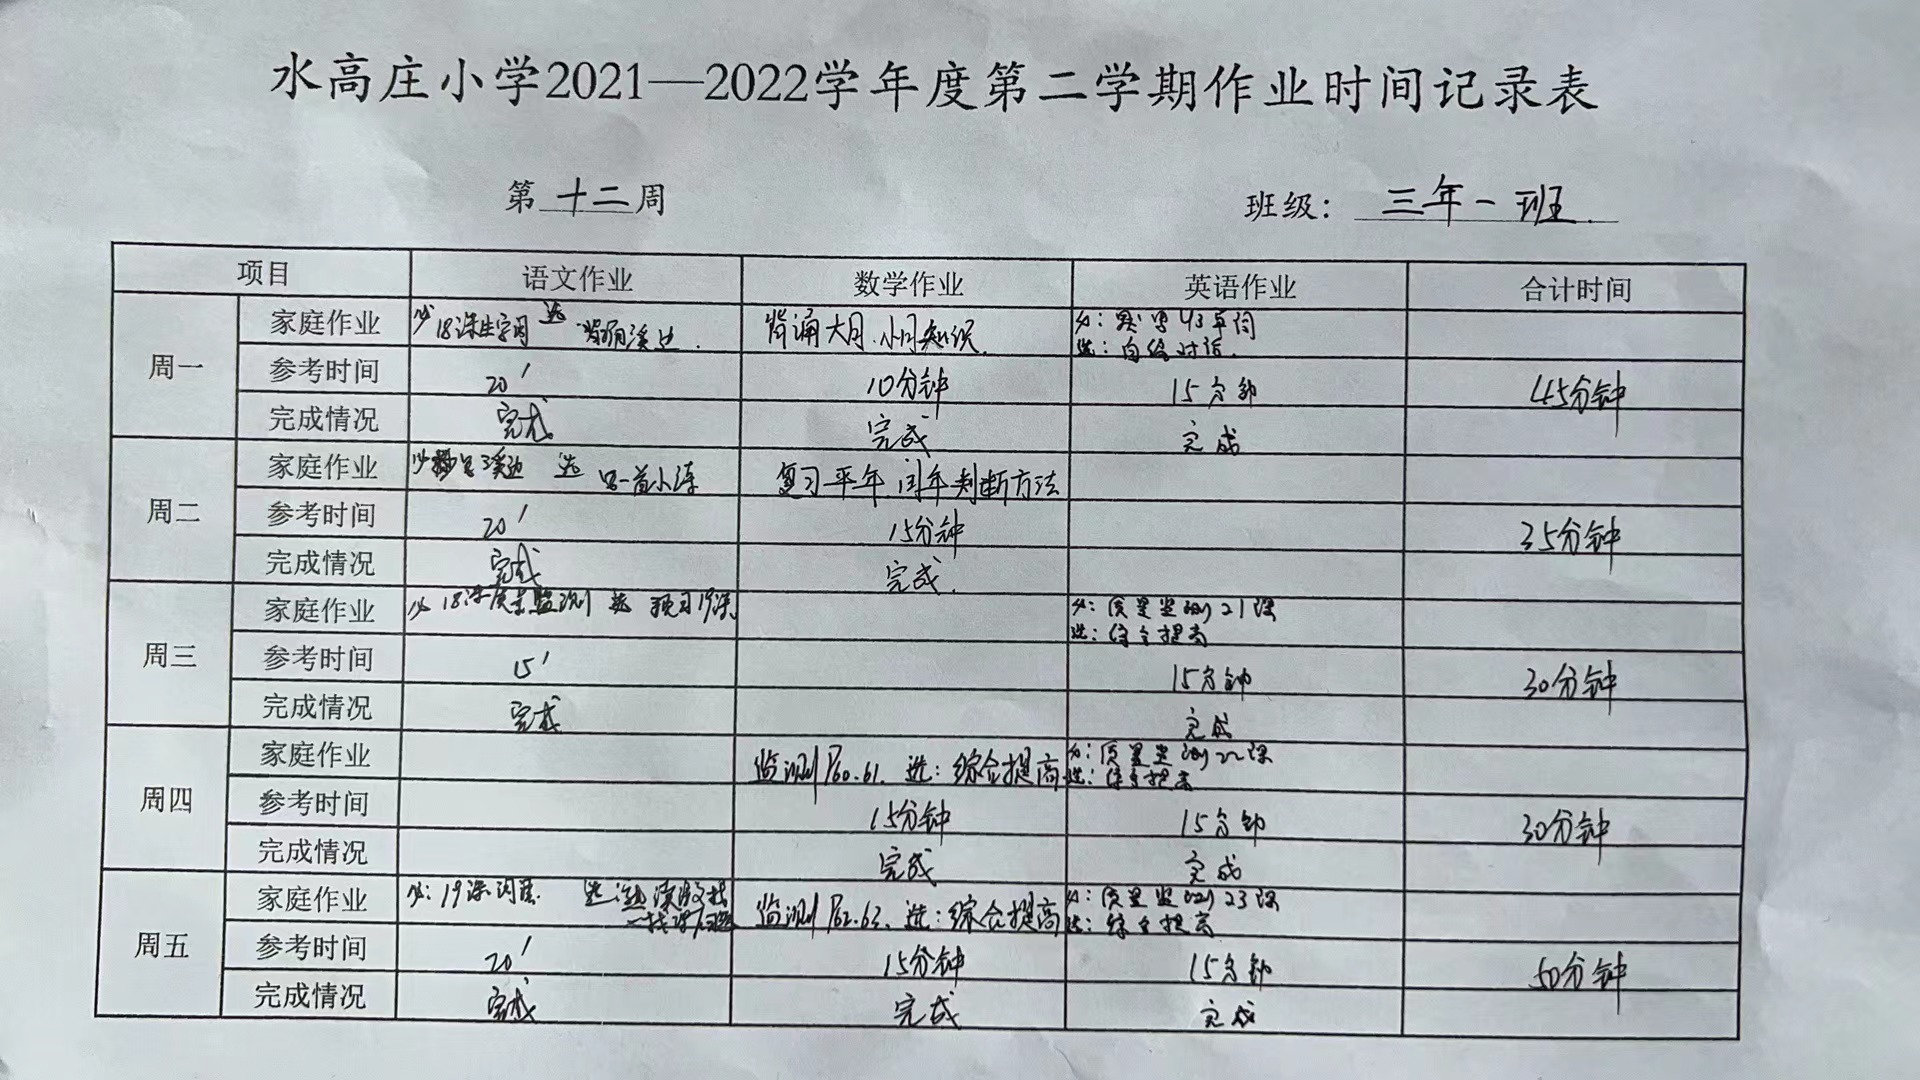 水高庄小学2021—2022学年度第二学期作业时间记录表
第 十二 周 班级： 三年一班
项目 语文作业 数学作业 英语作业 合计时间
周一 家庭作业 必 18课生字词 选 背 溪边 背诵大月、小月知识 必：默写43单词
选：自编对话
参考时间 20′ 10分钟 15分钟 45分钟
完成情况 完成 完成 完成
周二 家庭作业 必 溪边 选 写一首小诗 复习平年、闰年判断方法
参考时间 20′ 15分钟 35分钟
完成情况 完成 完成
周三 家庭作业 必 18课质量监测 选 预习19课 必：质量监测21课
选：综合提高
参考时间 15′ 15分钟 30分钟
完成情况 完成 完成
周四 家庭作业 监测P60.61. 选：综合提高 必：质量监测22课
选：综合提高
参考时间 15分钟 15分钟 30分钟
完成情况 完成 完成
周五 家庭作业 必：19课词语 选 监测P62.63. 选：综合提高 必：质量监测23课
选：综合提高
参考时间 20′ 15分钟 15分钟 50分钟
完成情况 完成 完成 完成